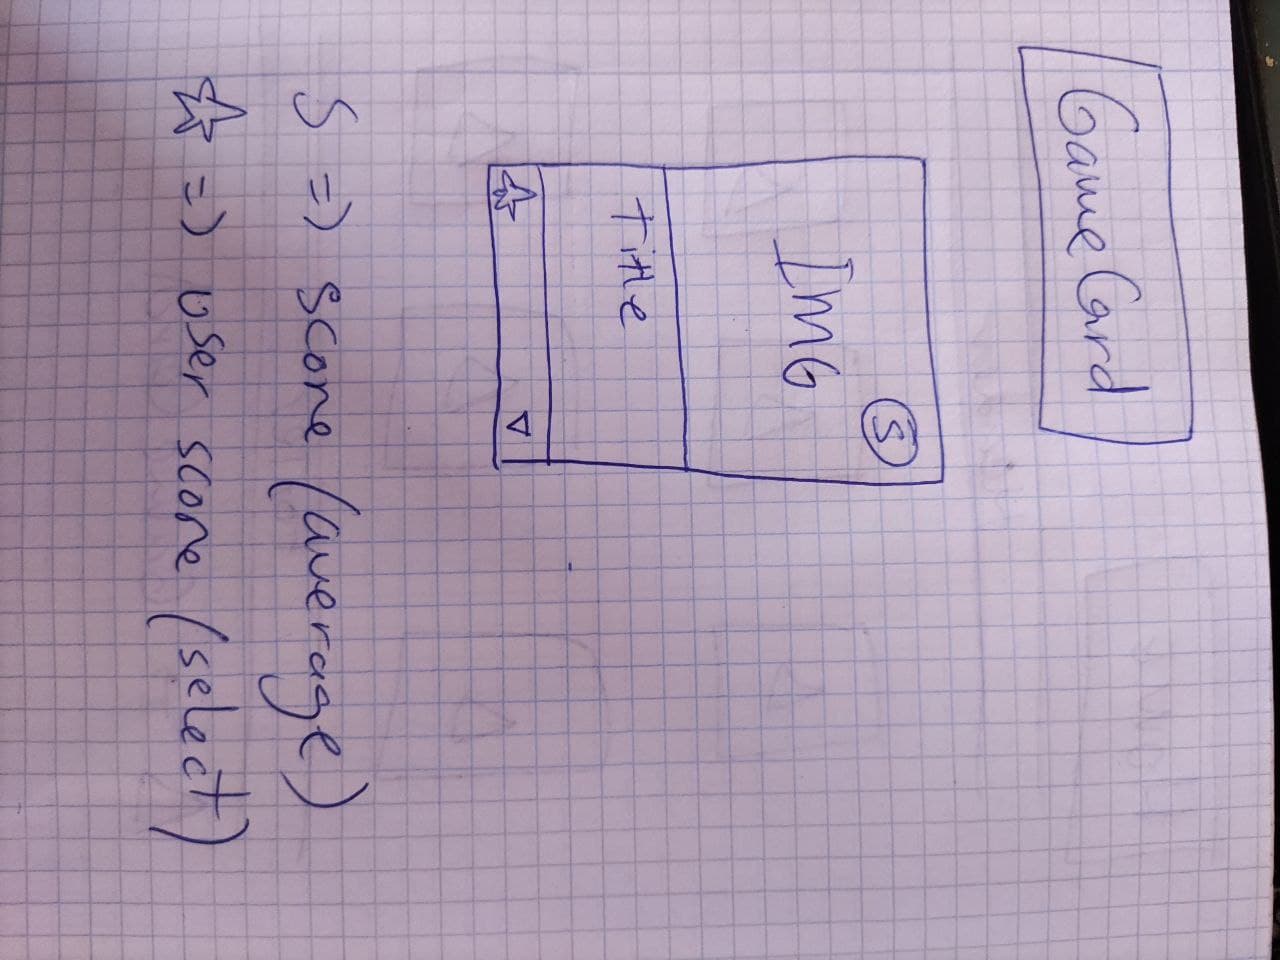 Game Card
S
IMG
Title
S => score (average)
☆ => user score (select)